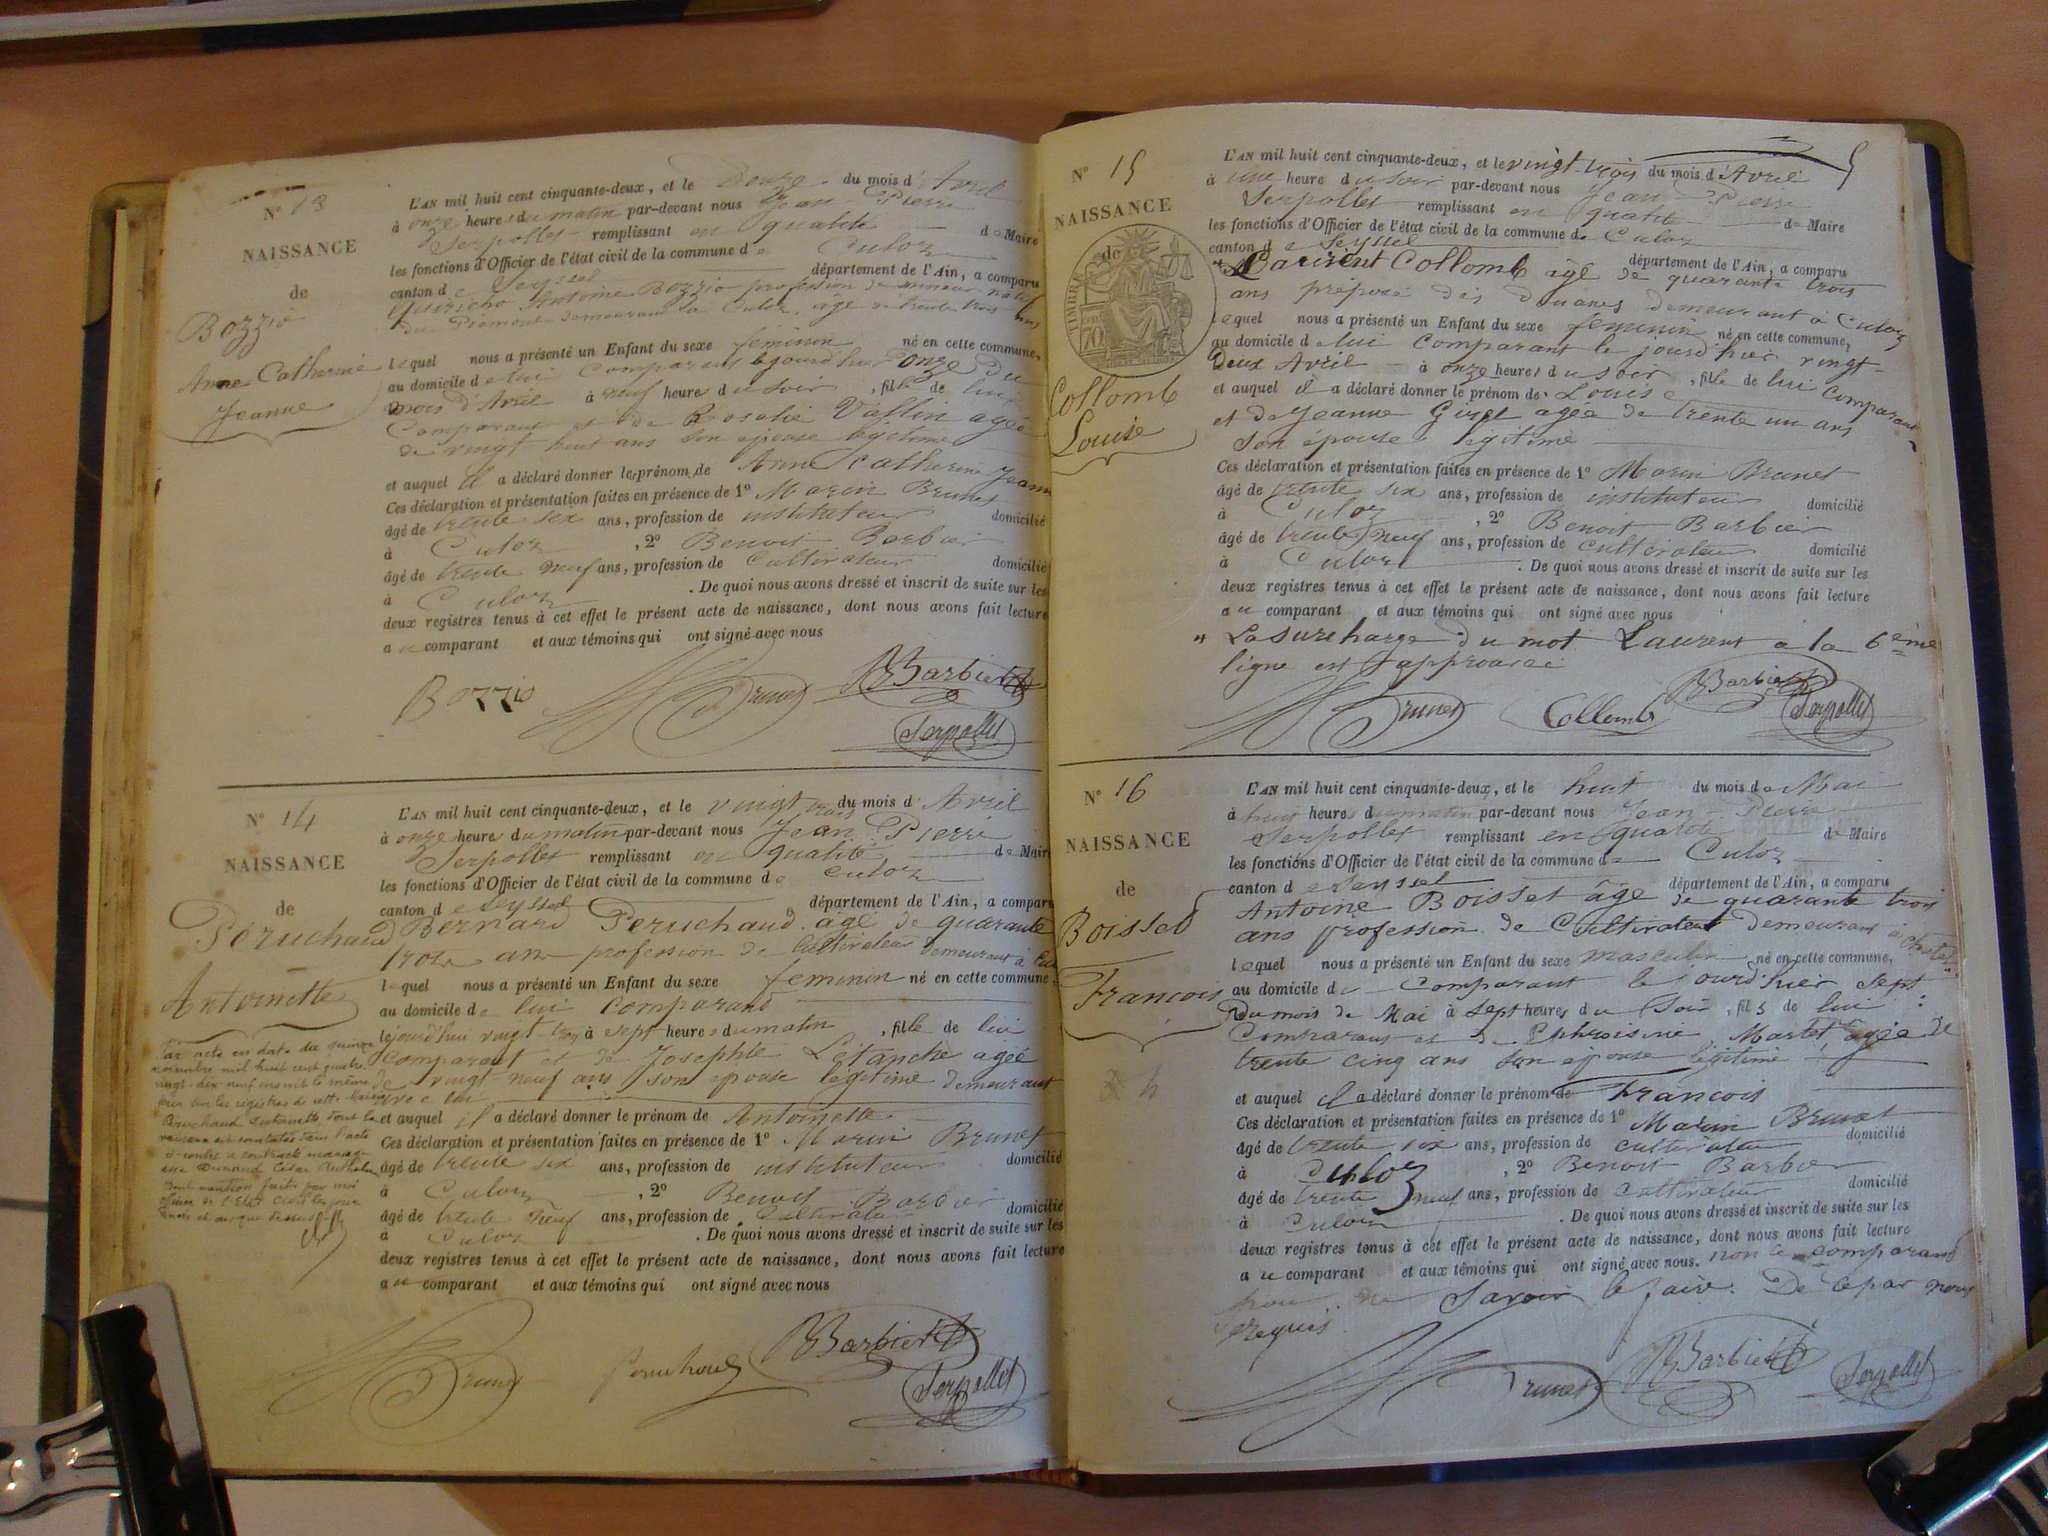 N° 13
NAISSANCE
de
Bozzio
Anne Catherine
Jeanne
L'AN mil huit cent cinquante-deux, et le Douze du mois d'Avril
à onze heures du matin par-devant nous Jean Pierre
Serpollet remplissant en qualité de Maire
les fonctions d'Officier de l'état civil de la commune de Culoz
canton de Seyssel département de l'Ain, a comparu
Antoine Bozzio profession de mineur natif
du Piémont demeurant à Culoz, âgé de trente trois ans
lequel nous a présenté un Enfant du sexe féminin né en cette commune,
au domicile de lui comparant le jourd'hier onze du
mois d'Avril à neuf heures du soir, fille de lui
Comparant et de Rosalie Vallin agée
de vingt huit ans son épouse légitime
et auquel il a déclaré donner les prénom de Anne Catherine Jeanne
Ces déclaration et présentation faites en présence de 1° Marin Brunet
âgé de trente six ans, profession de instituteur domicilié
à Culoz, 2° Benoit Barbier
âgé de trente neuf ans, profession de Cultivateur domicilié
à Culoz. De quoi nous avons dressé et inscrit de suite sur les
deux registres tenus à cet effet le présent acte de naissance, dont nous avons fait lecture
au comparant et aux témoins qui ont signé avec nous
Bozzio Brunet Barbier
Serpollet
N° 14
NAISSANCE
de
Peruchaud
Antoinette
Par acte en date du quinze
novembre mil huit cent quatre
vingt-dix neuf inscrit le même
jour sur les registres de cette Mairie
Peruchaud Antoinette dont la
naissance est constatée dans l'acte
ci-contre a contracté mariage
avec Dunand César Anthelme
Dont mention faite par moi
officier de l'Etat Civil les jour
mois et an que dessus
L'AN mil huit cent cinquante-deux, et le vingt trois du mois d'Avril
à onze heures du matin par-devant nous Jean Pierre
Serpollet remplissant en qualité de Maire
les fonctions d'Officier de l'état civil de la commune de Culoz
canton de Seyssel département de l'Ain, a comparu
Bernard Peruchaud âgé de quarante
trois ans profession de Cultivateur demeurant à
lequel nous a présenté un Enfant du sexe féminin né en cette commune,
au domicile de lui comparant
le jourd'hui vingt trois à sept heures du matin, fille de lui
Comparant et de Josephte Létanche agée
de vingt-neuf ans son épouse légitime demeurant
avec lui
et auquel il a déclaré donner le prénom de Antoinette
Ces déclaration et présentation faites en présence de 1° Marin Brunet
âgé de trente six ans, profession de instituteur domicilié
à Culoz, 2° Benoit Barbier
âgé de trente neuf ans, profession de Cultivateur domicilié
à Culoz. De quoi nous avons dressé et inscrit de suite sur les
deux registres tenus à cet effet le présent acte de naissance, dont nous avons fait lecture
au comparant et aux témoins qui ont signé avec nous
Brunet Peruchaud Barbier
Serpollet
5
N° 15
NAISSANCE
de
TIMBRE
70
Collomb
Louise
L'AN mil huit cent cinquante-deux, et le vingt-trois du mois d'Avril
à une heure du soir par-devant nous Jean Pierre
Serpollet remplissant en qualité de Maire
les fonctions d'Officier de l'état civil de la commune de Culoz
canton de Seyssel département de l'Ain, a comparu
" Laurent Collomb âgé de quarante trois
ans préposé des douanes demeurant à Culoz
lequel nous a présenté un Enfant du sexe féminin né en cette commune,
au domicile de lui comparant le jourd'hier vingt-
deux Avril à onze heures du soir, fille de lui comparant
et auquel il a déclaré donner le prénom de Louise
et de Jeanne Giret agée de trente un ans
son épouse légitime
Ces déclaration et présentation faites en présence de 1° Marin Brunet
âgé de trente six ans, profession de instituteur domicilié
à Culoz, 2° Benoit Barbier
âgé de trente neuf ans, profession de cultivateur domicilié
à Culoz. De quoi nous avons dressé et inscrit de suite sur les
deux registres tenus à cet effet le présent acte de naissance, dont nous avons fait lecture
au comparant et aux témoins qui ont signé avec nous
" La surcharge du mot Laurent à la 6ème
ligne est approuvée
Brunet Collomb Barbier Serpollet
N° 16
NAISSANCE
de
Boisset
François
L'AN mil huit cent cinquante-deux, et le huit du mois de Mai
à huit heures du matin par-devant nous Jean Pierre
Serpollet remplissant en qualité de Maire
les fonctions d'Officier de l'état civil de la commune de Culoz
canton de Seyssel département de l'Ain, a comparu
Antoine Boisset âgé de quarante trois
ans profession de Cultivateur demeurant à
lequel nous a présenté un Enfant du sexe masculin né en cette commune,
au domicile du Comparant le jourd'hier sept
du mois de Mai à sept heures du Soir, fils de lui
Comparant et de Ephroisine Martel agée de
trente cinq ans son épouse légitime
et auquel il a déclaré donner le prénom de François
Ces déclaration et présentation faites en présence de 1° Marin Brunet
âgé de trente six ans, profession de cultivateur domicilié
à Culoz, 2° Benoit Barbier
âgé de trente neuf ans, profession de Cultivateur domicilié
à Culoz. De quoi nous avons dressé et inscrit de suite sur les
deux registres tenus à cet effet le présent acte de naissance, dont nous avons fait lecture
au comparant et aux témoins qui ont signé avec nous. non le comparant
pour ne savoir le faire. De ce par nous
requis
Brunet Barbier Serpollet